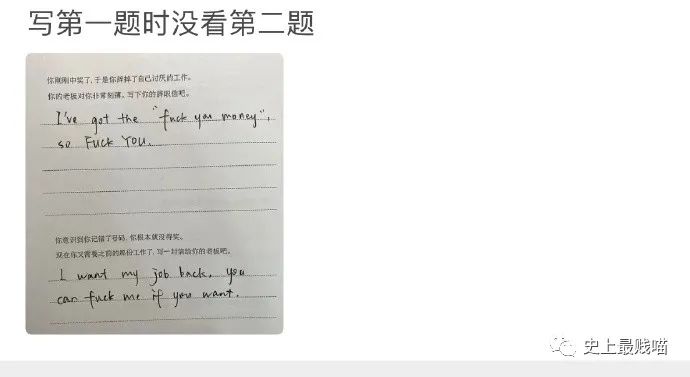 写第一题时没看第二题
你刚刚中奖了，于是你辞掉了自己讨厌的工作。
你的老板对你非常刻薄。写下你的辞职信吧。
I've got the "fuck you money",
so FUCK YOU.
你意识到你记错了号码，你根本就没得奖。
现在你又需要之前的那份工作了，写一封信给你的老板吧。
I want my job back, you
can fuck me if you want.
史上最贱喵